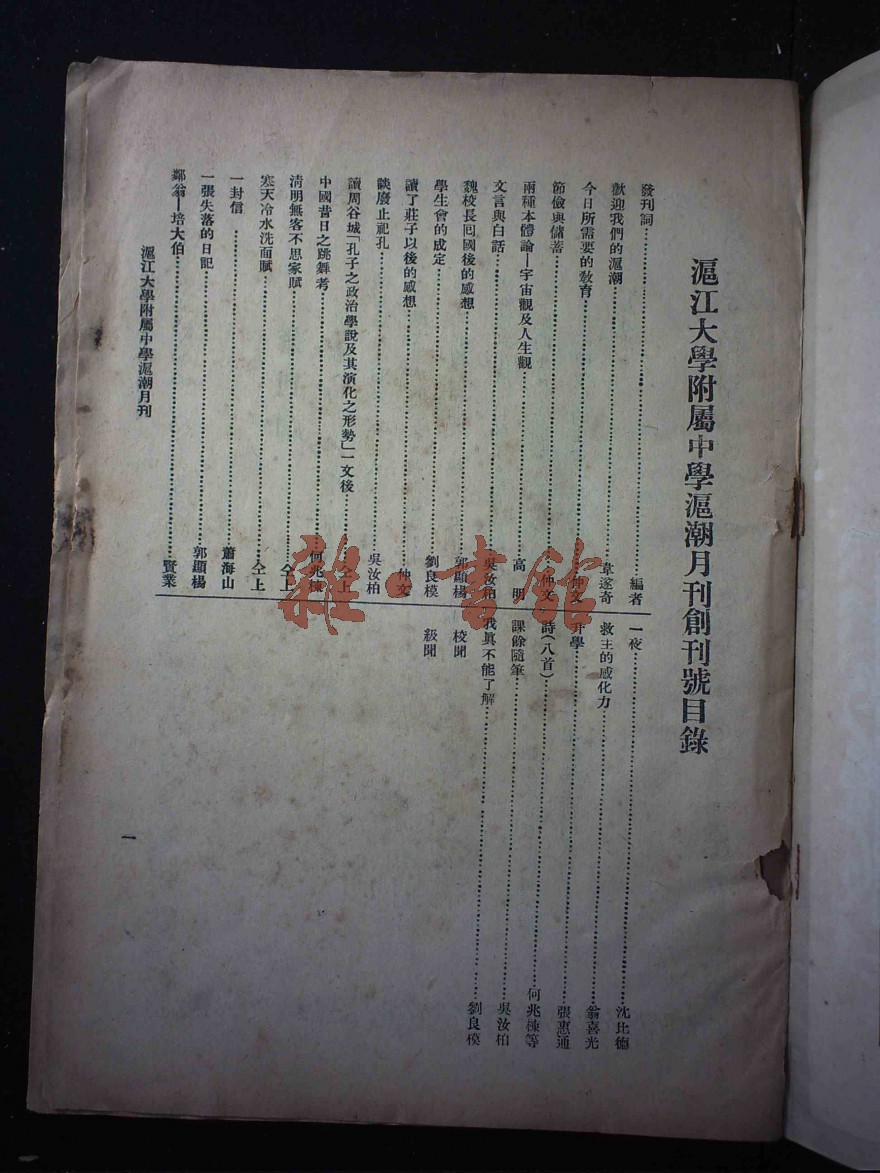 滬江大學附屬中學滬潮月刊創刊號目錄
發刊詞……編者
歡迎我們的滬潮……韋遂奇
今日所需要的敎育……仲文
節儉與儲蓄……仲文
兩種本體論—宇宙觀及人生觀……高 明
文言與白話……吳汝柏
魏校長囘國後的感想……郭顯楊
學生會的成定……劉良模
讀了莊子以後的感想……仲文
談廢止祀孔……吳汝柏
讀周谷城「孔子之政治學說及其演化之形勢」一文後……仝上
中國昔日之跳舞考……何兆棟
淸明無客不思家賦……仝上
寒天冷水洗面賦……仝上
一封信……蕭海山
一張失落的日記……郭顯楊
鄰翁—培大伯……賢業
一夜……沈比德
救主的感化力……翁喜光
升學……張惠通
詩(八首)……何兆棟等
課餘隨筆……吳汝柏
我眞不能了解……劉良模
校聞
級聞
滬江大學附屬中學滬潮月刊
一
雜·書館